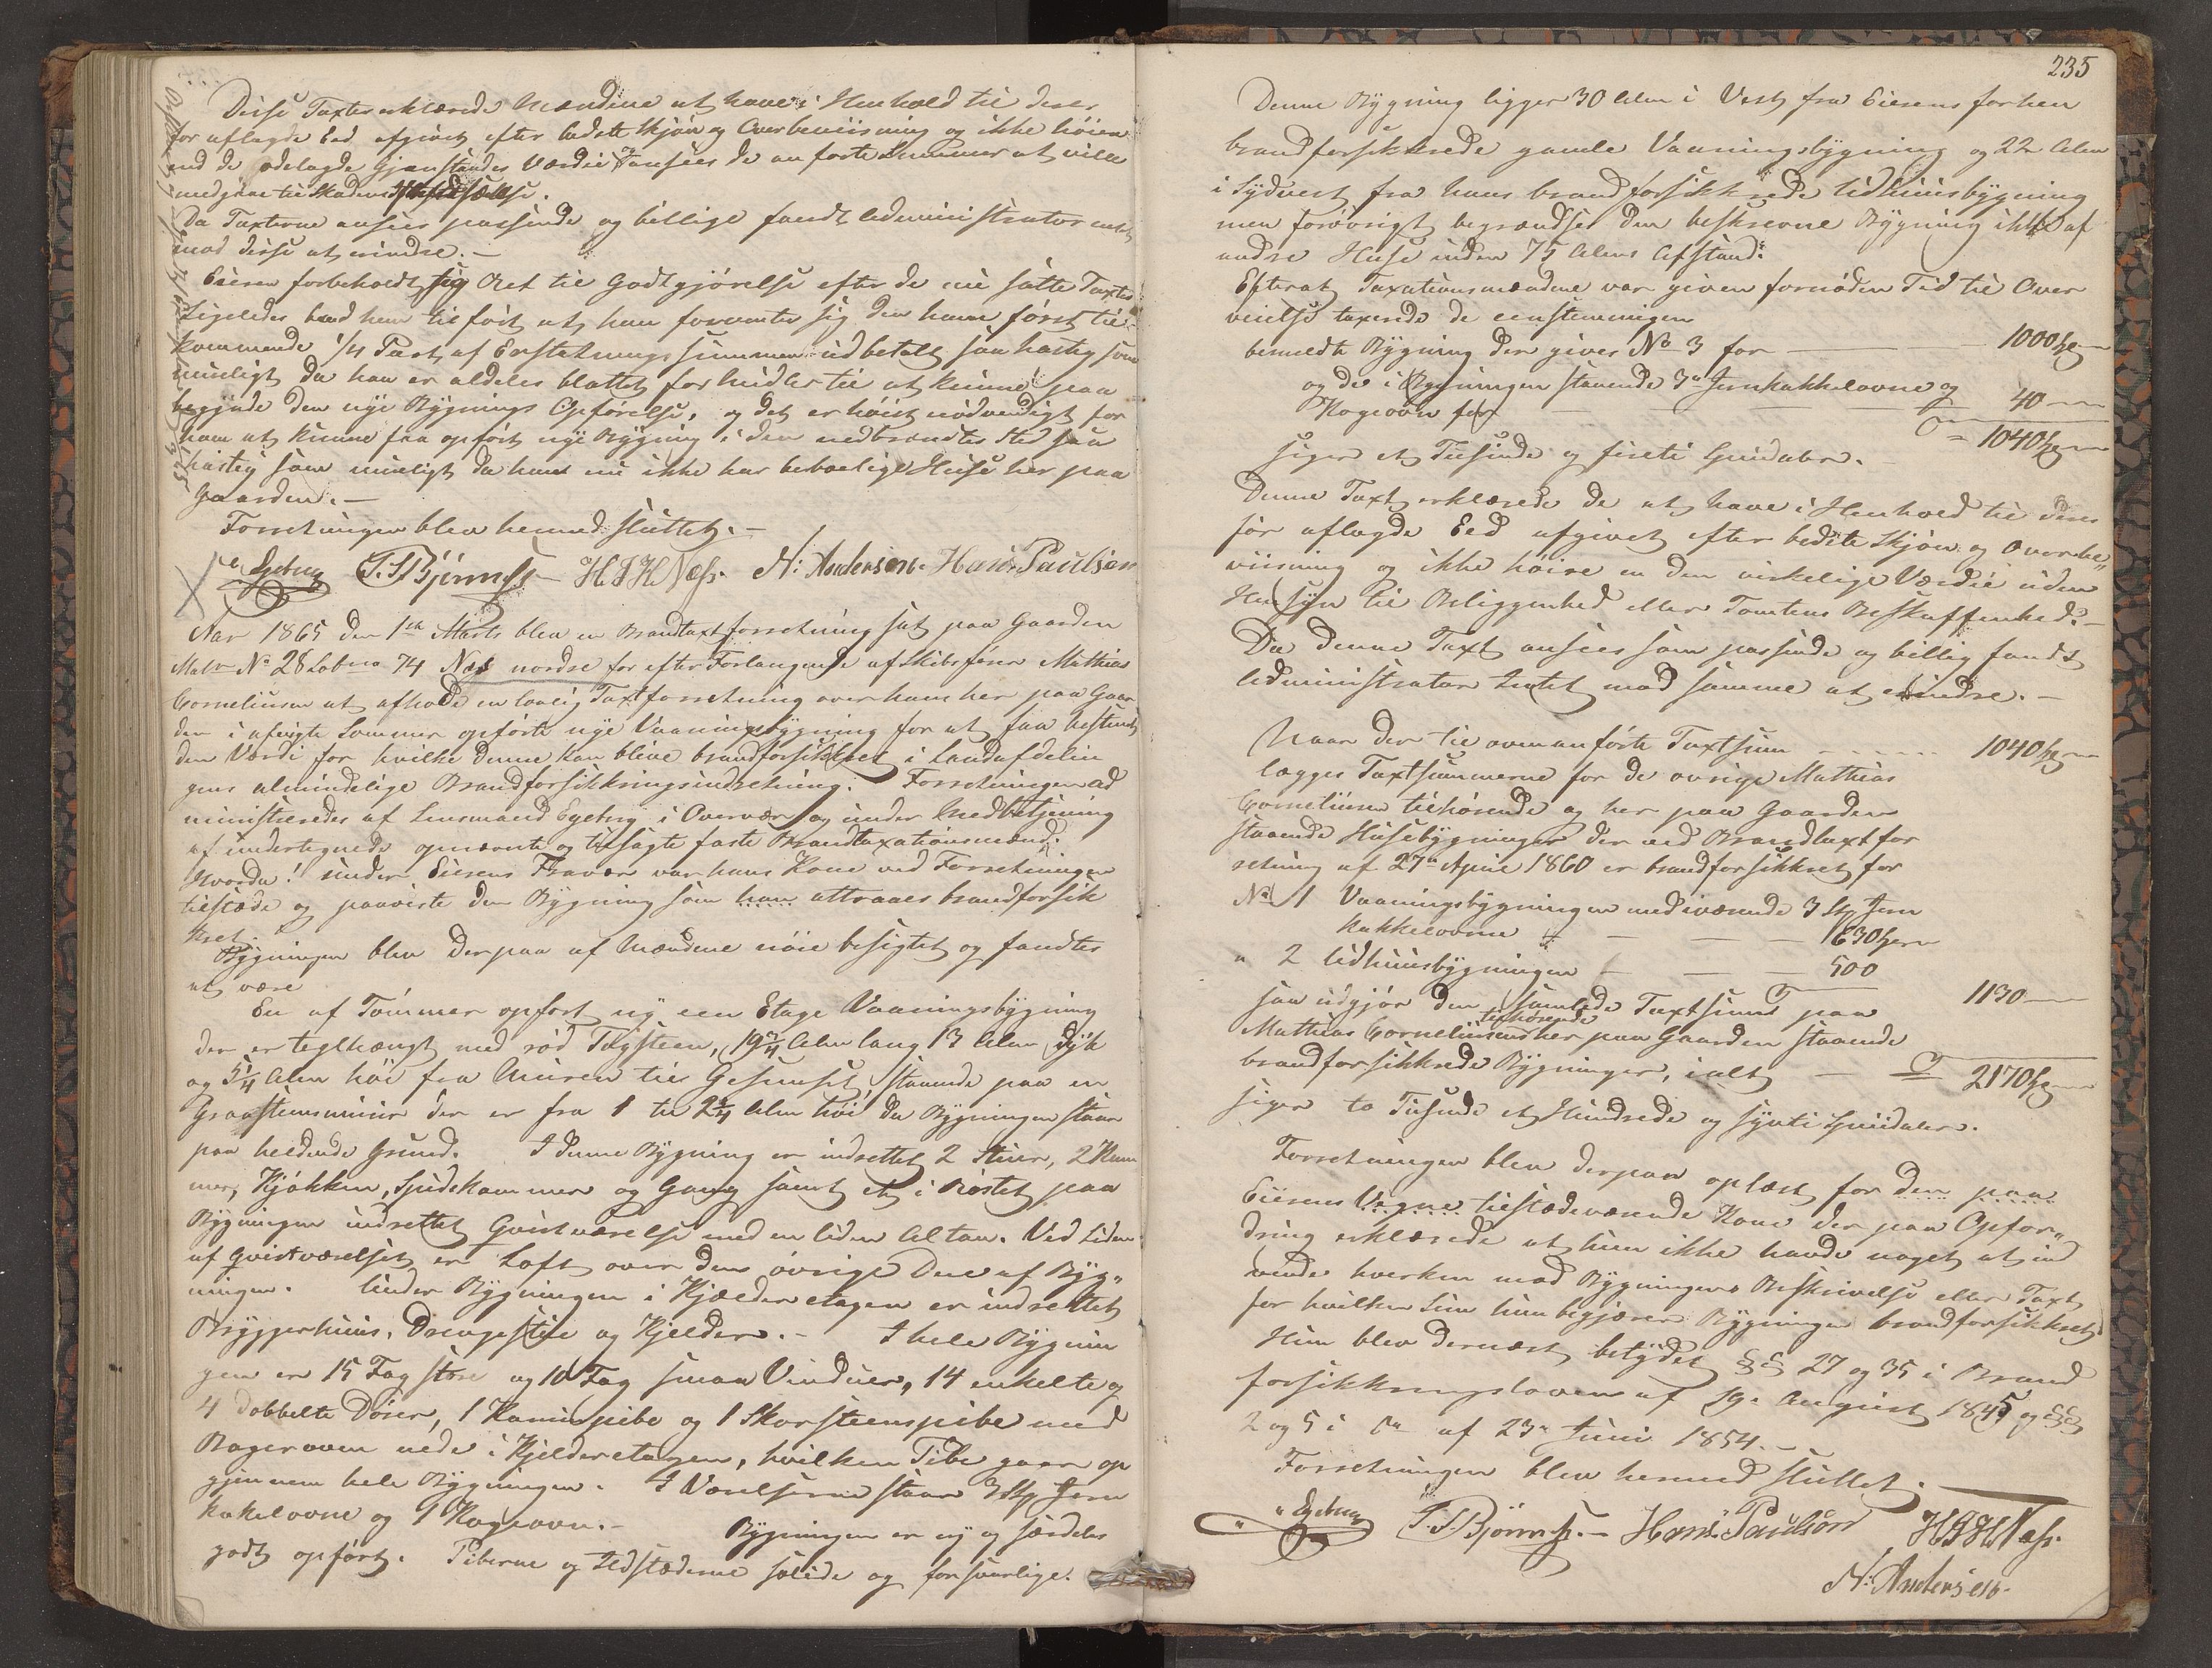 Disse Taxter erklærede Mændene at have i Henhold til deres
før aflagde Eed afgivet efter bedste Skjøn og Overbeviisning og ikke høiere
end de ødelagde Gjenstandes Værdie og ansees de anførte Summer at ville
medgaae til Skadens
Da Taxterne ansees passende og billige fandt Administrator intet
mod disse at erindre. –
Eieren forbeholdt sig Ret til Godtgjørelse efter de nu satte Taxter
Ligeledes bad han tilført at han forventer sig den ham først til-
kommende 1/4 Part af Erstatningssummen udbetalt saa hastig som
muligt da han er aldeles blottet for Midler til at kunne paa
begynde den nye Bygnings Opførelse, og det er høist nødvendigt for
ham at kunne faa opført nye Bygning i den nedbrændtes Sted saa
hastig som muligt da han nu ikke har beboelige Huse her paa
Gaarden. –
Forretningen blev hermed sluttet. –
Egeberg T. S. Bjørness – H J H Næss. N: Andersen. Hans Paulsen
Aar 1865 den 1ste Marts blev en Brandtaxtforretning sat paa Gaarden
Matr No 28 Løbno 74 Næs nordre for efter Forlangende af Skibsfører Mathias
Corneliusen at afholde en lovlig Taxtforretning over hans her paa Gaar
den i afvigte Sommer opførte nye Vaaningsbygning for at faa bestemt
den Værdi for hvilke denne kan blive brandforsikkret i Landafdelin
gens almindelige Brandforsikkringsindretning. Forretningen ad
ministreredes af Lensmand Egeberg i Overvær og under Medbetjening
af undertegnede opnævnte og tilsagte faste Brandtaxationsmænd.
Hvorda! under Eierens Fravær var hans Kone ved Forretningen
tilstæde og paaviste den Bygning som han attraaer brandforsik
kret.
Bygningen blev derpaa af Mændene nøie besigtet og fandtes
at være
En af Tømmer opført ny een Etage Vaaningsbygning
der er teglhængt med rød Tagsteen, 19 3/4 Alen lang 13 Alen dyb
og 5 1/4 Alen høi fra Muren til Gesimset, staaende paa en
Graasteensmuur der er fra 1 til 2 3/4 Alen høi da Bygningen staar
paa heldende Grund. I denne Bygning er indrettet 2 Stuer, 2 Kam
mer, Kjøkken, Spidskammer og Gang samt et i Røstet paa
Bygningen indrettet Qvistværelse med en liden Altan. Ved Siden
af Qvistværelset er Loft over den øvrige Deel af Byg„
ningen. Under Bygningen i Kjælderetagen er indrettet
Bryggerhuus, Drengestue og Kjelder. – I hele Bygnin
gen er 15 Fag store og 10 Fag smaa Vinduer, 14 enkelte og
4 dobbelte Døre, 1 Kaminpibe og 1 Skorsteenspibe med
Bagerovn nede i Kjelderetagen, hvilken Pibe gaar op
gjennem hele Bygningen. I Værelserne staar 3 Stk Jern
kakelovne og 1 Kogeovn. – Bygningen er ny og særdeles
godt opført. Piberne og Ildstæderne solide og forsvarlige.
235
Denne Bygning ligger 30 Alen i Vest fra Eierens forhen
brandforsikkrede gamle Vaaningsbygning og 22 Alen
i Sydvest fra hans brandforsikkrede Udhuusbygning
men forøvrigt begrændses den beskrevne Bygning ikke af
andre Huse inden 75 Alens Afstand.
Efterat Taxationsmændene var given fornøden Tid til Over
veielse taxerede de eenstemmigen
bemeldte Bygning der gives No 3 for — 1000 –
og de i Bygningen staaende 3de Jernkakkelovne og
Kogeovn for — 40 –
= 1040 –
siger et Tusinde og fireti Speciedaler.
Denne Taxt erklærede de at have i Henhold til deres
før aflagde Eed afgivet efter bedste Skjøn og Overbe„
viisning og ikke høire en den virkelige Værdie uden
Hensyn til Beliggenhed eller Tomtens Beskaffenhed. –
Da denne Taxt ansees som passende og billig fandt
Administrator Intet mod samme at erindre. –
Naar der til ovenanførte Taxtsum - - - - - 1040 –
lægges Taxtsummerne for de øvrige Mathias
Corneliusen tilhørende og her paa Gaarden
staaende Husebygninger der ved Brandtaxtfor
retning af 27de April 1860 er brandforsikkret for
No 1 Vaaningsbygningen med iværende 3 Stk Jern
kakkelovne — 630
„ 2 Udhuusbygningen — 500
saa udgjør den samlede Taxtsum paa 1130 –
tilhørende
Mathias Corneliusens her paa Gaarden staaende
brandforsikkrede Bygninger, ialt — 2170 –
siger to Tusinde et Hundrede og sytti Speciedaler.
Forretningen blev derpaa oplæst for den paa
Eierens Vegne tilstædeværende Kone der paa Opfor„
dring erklærede at hun ikke havde noget at ind
vende hverken mod Bygningens Beskrivelse eller Taxt
for hvilken Sum hun begjærer Bygningen brandforsikkret
Hun blev dernæst betydet §§ 27 og 35 i Brand
forsikkringsloven af 19. August 1845 og §§
2 og 5 i Do af 23de Juni 1854. –
Forretningen blev hermed sluttet.
Egeberg T. S. Bjørness. – Hans Paulsen H J H Næss.
N: Andersen.